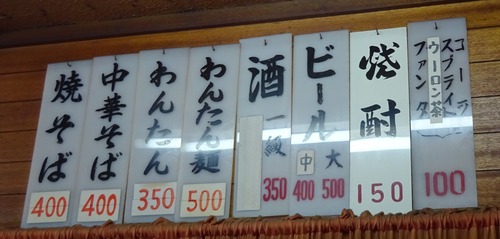 コーラ
スプライト
ウーロン茶
ファンタ
100
焼酎
150
ビール
大
500
中
400
酒
一級
350
わんたん麺
500
わんたん
350
中華そば
400
焼そば
400